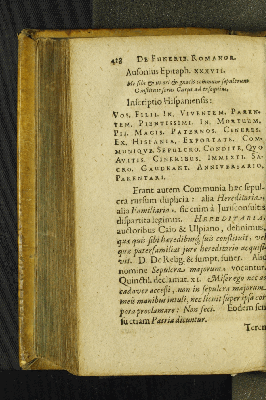 418 DE FUNERIB. ROMANOR.
Ausonius Epitaph. XXXVII.
Me sibi & uxori & gnatis commune sepulcrum
Inscriptio Hispaniensis:
VOS. FILII. IN. VIVENTEM. PAREN-
TEM. PIENTISSIMI. IN. MORTUUM.
PII. MAGIS. PATERNOS. CINERES.
EX. HISPANIA. EXPORTATE. COM-
MUNIQUE. SEPULCRO. CONDITE. QUO
AVITIS. CINERIBUS. IMMIXTI. SA-
CRO. GAUDEANT. ANNIVERSARIO.
PARENTARI.
Erant autem Communia hæc sepul-
cra rursum duplicia: alia Hereditaria,
alia Familiaria. sic enim à Jurisconsultis
dispartita legimus. HEREDITARIA
auctoribus Caio & Ulpiano, definimus,
quæ quis sibi heredibusq; suis constituit, vel
quæ paterfamilias jure hereditario acquisi-
vit. D. De Relig. & sumpt. funer. Alio
nomine Sepulcra majorum vocantur.
Quinctil. declamat. XI. Misero nec ad
cadaver accessi, non in sepulcra majorum
meis manibus intuli, nec licuit super ipsa cor-
pora proclamare: Non feci. Eodem sen-
su etiam Patria dicuntur.
Teren-